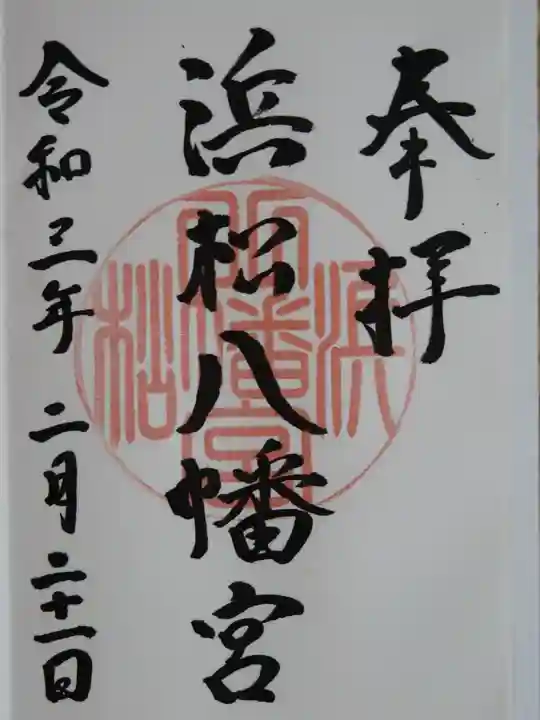 奉拝
浜松八幡宮
令和三年二月二十一日
浜松八幡宮